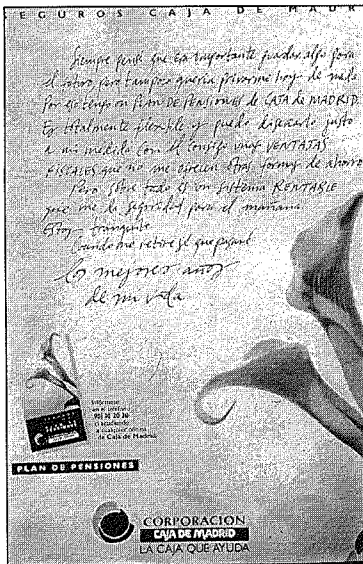 SEGUROS CAJA DE MADR
Siempre pensé que era importante guardar algo para
el retiro, pero tampoco quería privarme hoy de nada
Por eso tengo un PLAN DE PENSIONES de CAJA de MADRID.
Es totalmente flexible y puedo diseñarlo justo
a mi medida. Con él consigo unas VENTAJAS
FISCALES que no me ofrecen otras formas de ahorro
Pero sobre todo es un sistema RENTABLE
que me da seguridad para el mañana.
Estoy tranquilo
Cuando me retire sé que pasaré
los mejores años
de mi vida
Infórmese
en el teléfono
o acudiendo
a cualquier oficina
de Caja de Madrid.
PLAN DE PENSIONES
CORPORACION
CAJA DE MADRID
LA CAJA QUE AYUDA